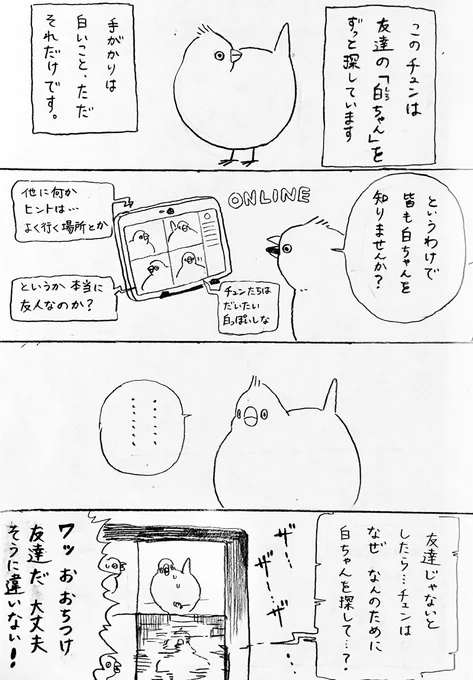 このチュンは
友達の「白ちゃん」を
ずっと探しています
手がかりは
白いこと、ただ
それだけです。
というわけで
皆も白ちゃんを
知りませんか?
ONLINE
他に何か
ヒントは…
よく行く場所とか
というか 本当に
友人なのか?
チュンたちは
だいたい
白っぽいしな
…………
…………
友達じゃないと
したら…チュンは
なぜ なんのために
白ちゃんを探して…?
ザー…
ザー…
ザ…
ワッ おおちつけ
友達だ 大丈夫
そうに違いない!